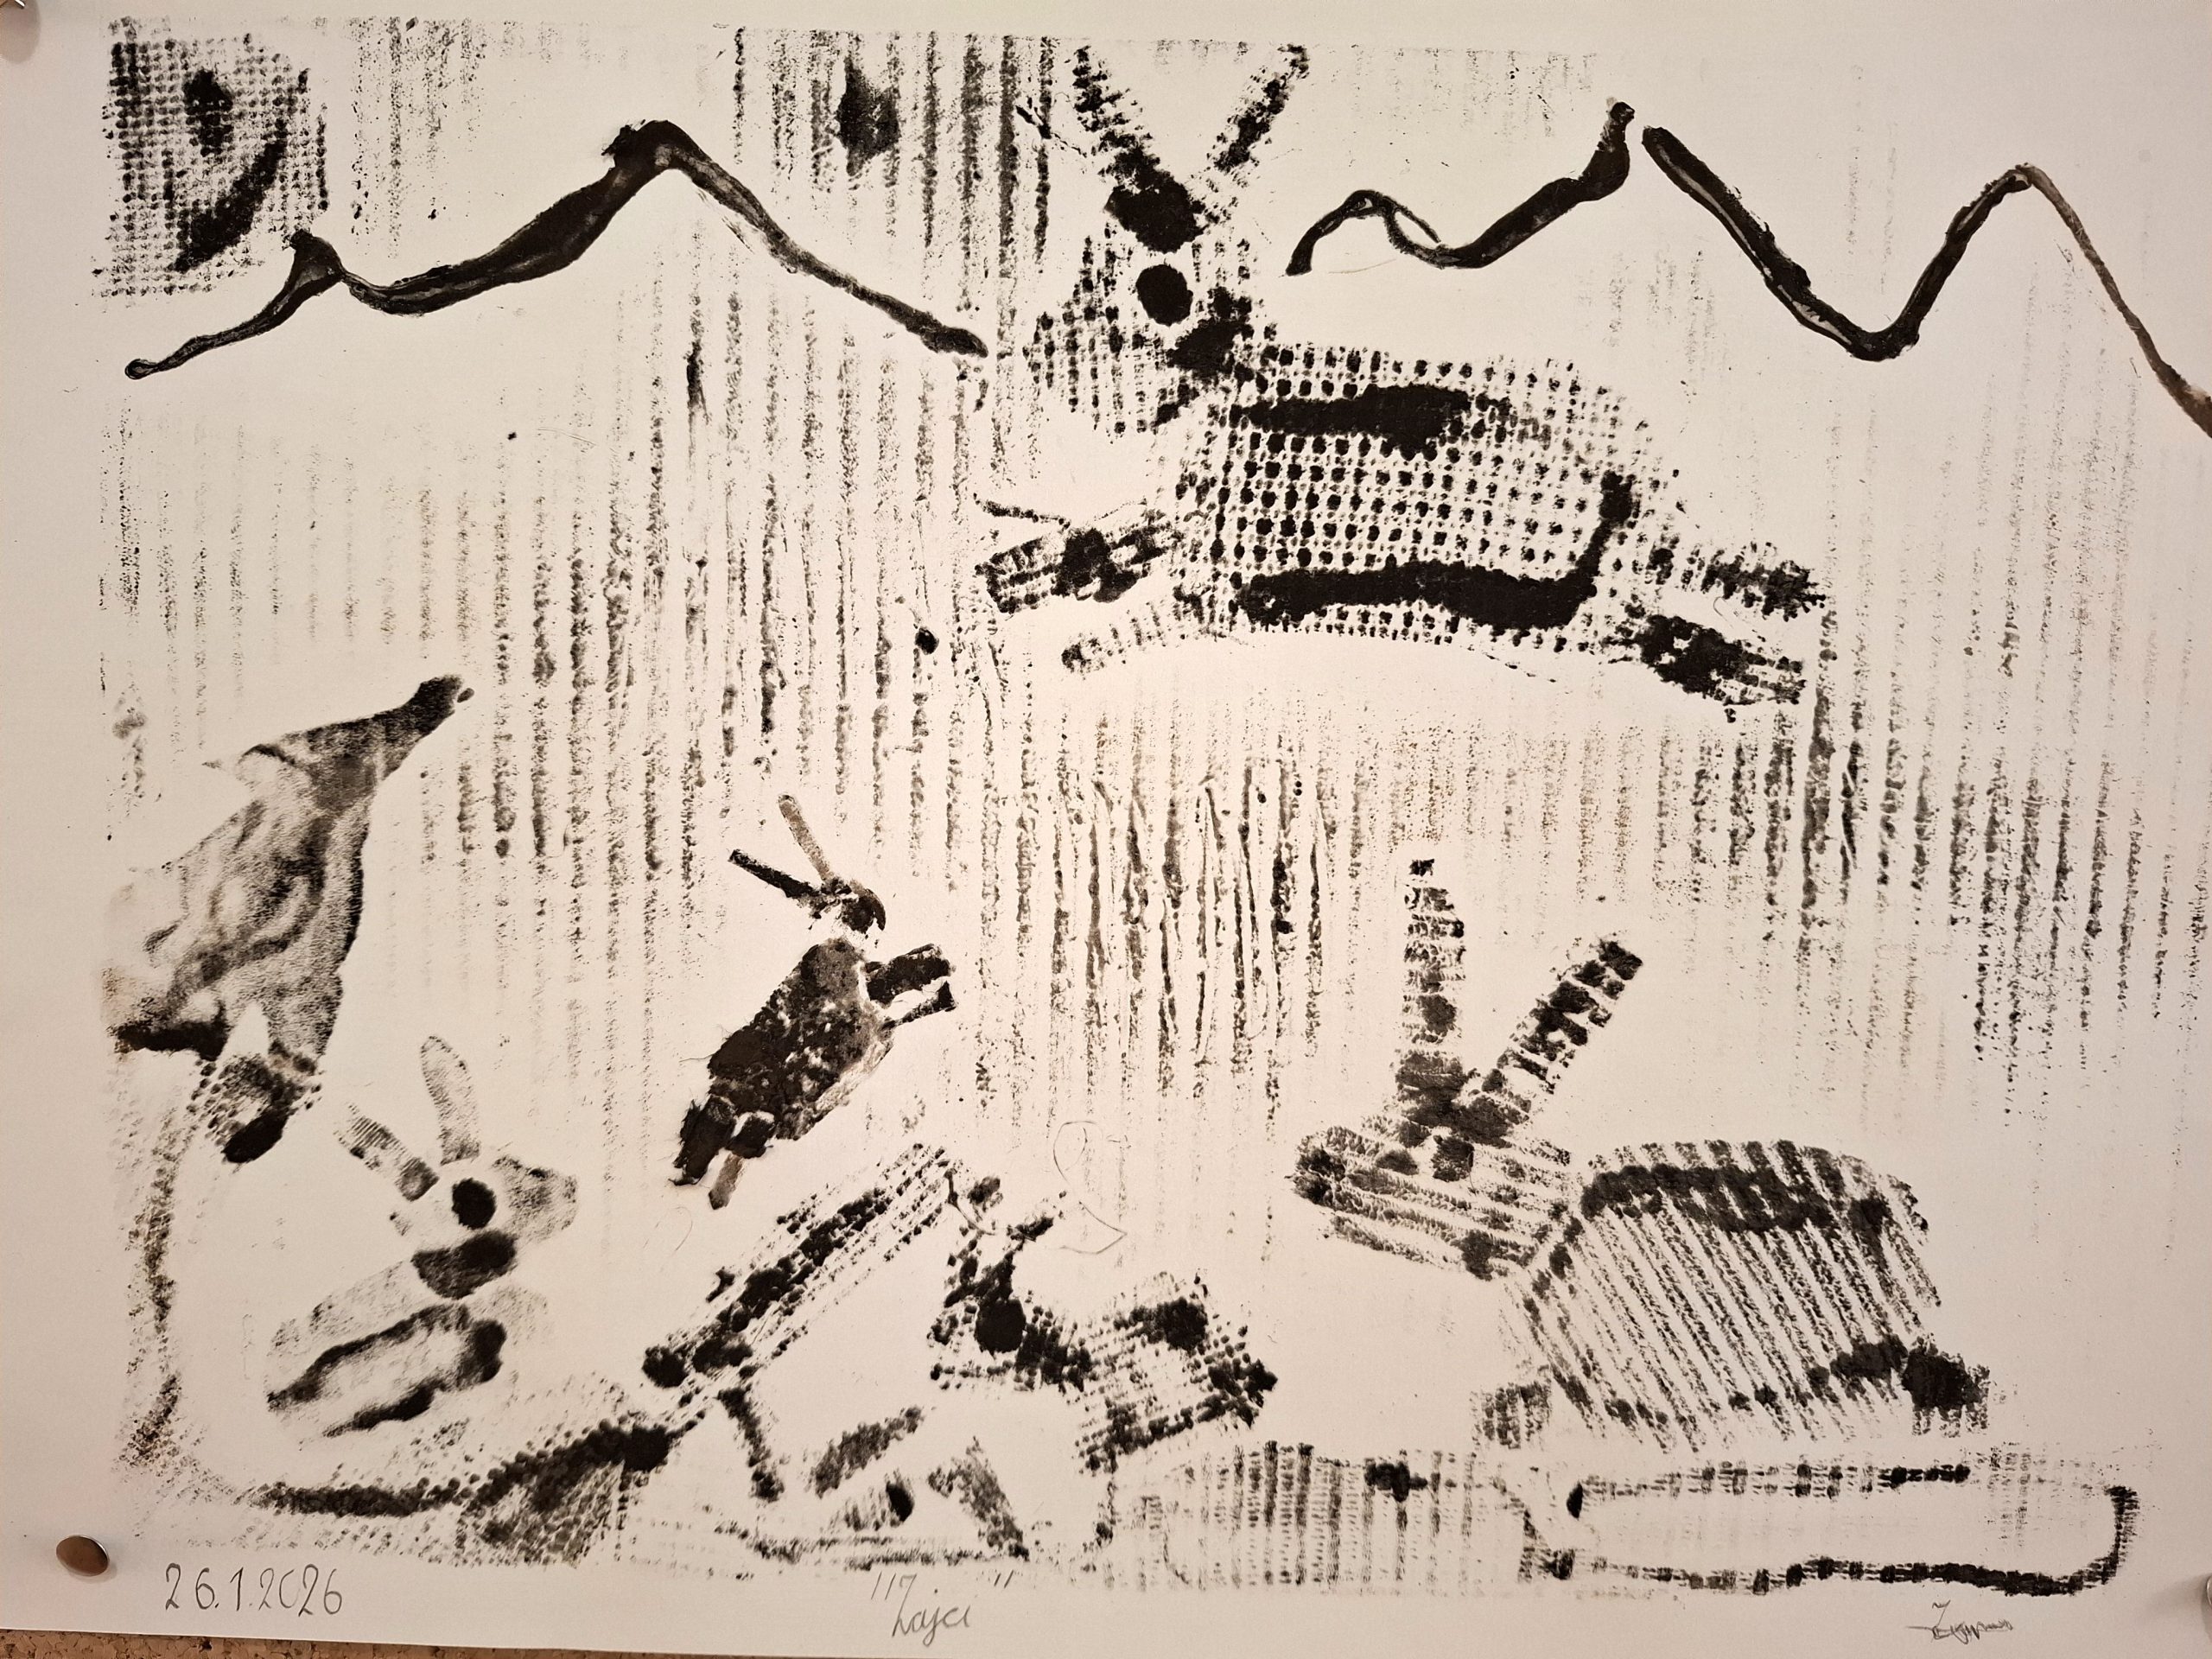 26.1.2026
"Zajci"